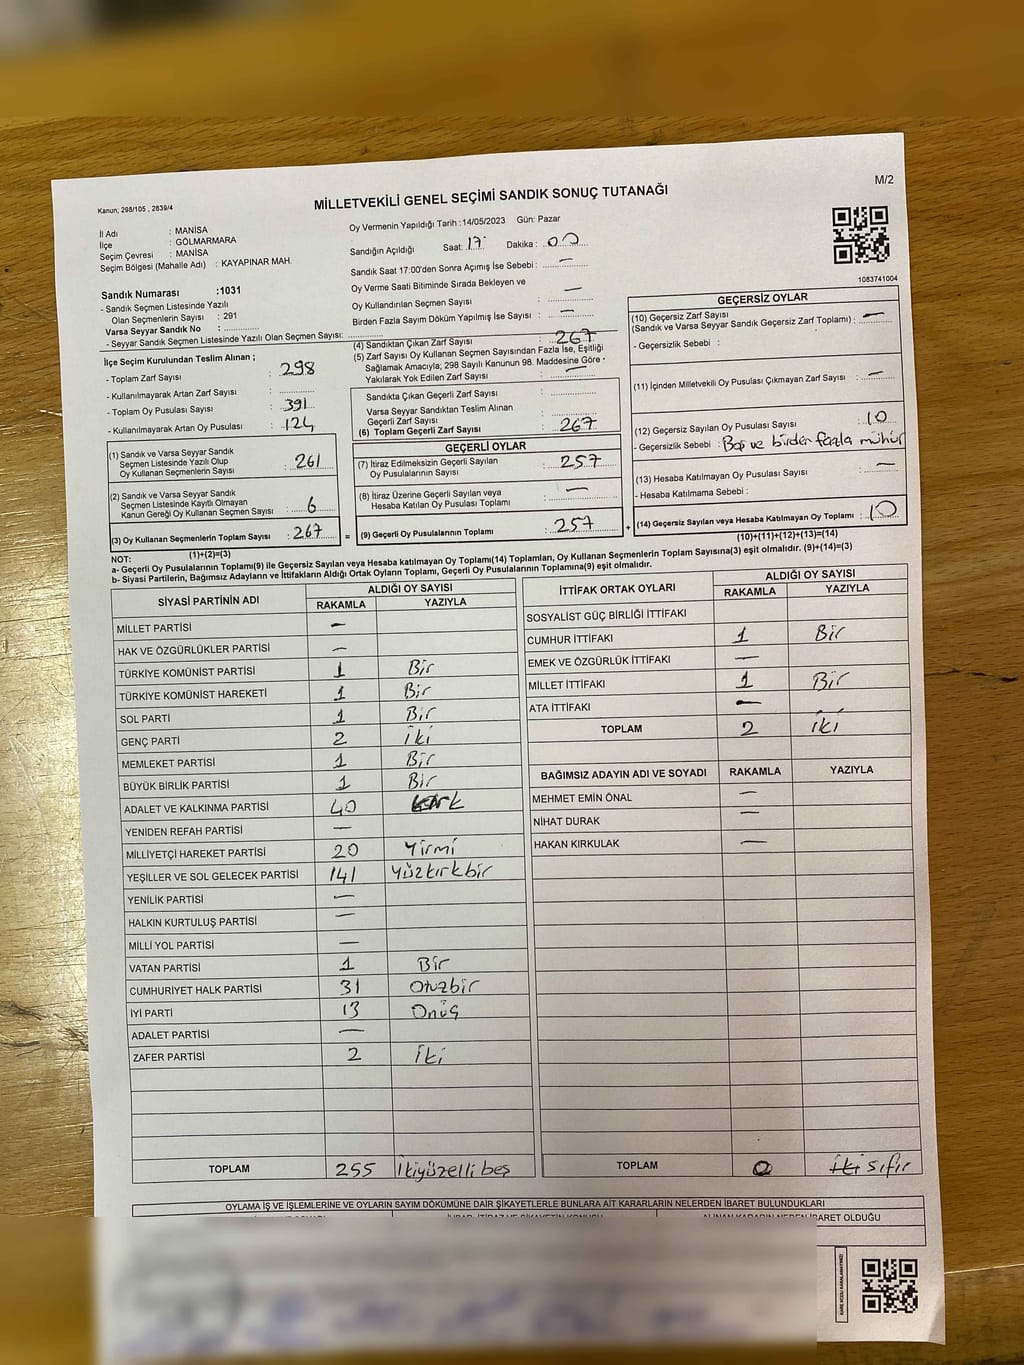 Kanun; 298/105 , 2839/4
MİLLETVEKİLİ GENEL SEÇİMİ SANDIK SONUÇ TUTANAĞI
M/2
İl Adı : MANİSA
İlçe : GÖLMARMARA
Seçim Çevresi : MANİSA
Seçim Bölgesi (Mahalle Adı) : KAYAPINAR MAH.
Oy Vermenin Yapıldığı Tarih :14/05/2023 Gün: Pazar
Sandığın Açıldığı Saat: 17 Dakika : 00
Sandık Saat 17:00'den Sonra Açımış İse Sebebi : —
Oy Verme Saati Bitiminde Sırada Bekleyen ve
Oy Kullandırılan Seçmen Sayısı : —
Birden Fazla Sayım Döküm Yapılmış İse Sayısı : —
1083741004
Sandık Numarası :1031
- Sandık Seçmen Listesinde Yazılı
Olan Seçmenlerin Sayısı : 291
Varsa Seyyar Sandık No :
- Seyyar Sandık Seçmen Listesinde Yazılı Olan Seçmen Sayısı:
İlçe Seçim Kurulundan Teslim Alınan ;
- Toplam Zarf Sayısı : 298
- Kullanılmayarak Artan Zarf Sayısı :
- Toplam Oy Pusulası Sayısı : 391
- Kullanılmayarak Artan Oy Pusulası : 124
(1) Sandık ve Varsa Seyyar Sandık
Seçmen Listesinde Yazılı Olup
Oy Kullanan Seçmenlerin Sayısı : 261
(2) Sandık ve Varsa Seyyar Sandık
Seçmen Listesinde Kayıtlı Olmayan
Kanun Gereği Oy Kullanan Seçmen Sayısı : 6
(3) Oy Kullanan Seçmenlerin Toplam Sayısı : 267
(1)+(2)=(3)
(4) Sandıktan Çıkan Zarf Sayısı : 267
(5) Zarf Sayısı Oy Kullanan Seçmen Sayısından Fazla İse, Eşitliği
Sağlamak Amacıyla; 298 Sayılı Kanunun 98. Maddesine Göre
Yakılarak Yok Edilen Zarf Sayısı : —
Sandıkta Çıkan Geçerli Zarf Sayısı :
Varsa Seyyar Sandıktan Teslim Alınan
Geçerli Zarf Sayısı :
(6) Toplam Geçerli Zarf Sayısı : 267
GEÇERLİ OYLAR
(7) İtiraz Edilmeksizin Geçerli Sayılan
Oy Pusulalarının Sayısı : 257
(8) İtiraz Üzerine Geçerli Sayılan veya
Hesaba Katılan Oy Pusulası Toplamı : —
= (9) Geçerli Oy Pusulalarının Toplamı : 257 +
GEÇERSİZ OYLAR
(10) Geçersiz Zarf Sayısı
(Sandık ve Varsa Seyyar Sandık Geçersiz Zarf Toplamı) : —
- Geçersizlik Sebebi :
(11) İçinden Milletvekili Oy Pusulası Çıkmayan Zarf Sayısı : —
(12) Geçersiz Sayılan Oy Pusulası Sayısı : 10
- Geçersizlik Sebebi : Boş ve birden fazla mühür
(13) Hesaba Katılmayan Oy Pusulası Sayısı : —
- Hesaba Katılmama Sebebi :
(14) Geçersiz Sayılan veya Hesaba Katılmayan Oy Toplamı : 10
(10)+(11)+(12)+(13)=(14)
NOT:
a- Geçerli Oy Pusulalarının Toplamı(9) ile Geçersiz Sayılan veya Hesaba katılmayan Oy Toplamı(14) Toplamları, Oy Kullanan Seçmenlerin Toplam Sayısına(3) eşit olmalıdır. (9)+(14)=(3)
b- Siyasi Partilerin, Bağımsız Adayların ve İttifakların Aldığı Ortak Oyların Toplamı, Geçerli Oy Pusulalarının Toplamına(9) eşit olmalıdır.
SİYASİ PARTİNİN ADI ALDIĞI OY SAYISI
RAKAMLA YAZIYLA
MİLLET PARTİSİ —
HAK VE ÖZGÜRLÜKLER PARTİSİ —
TÜRKİYE KOMÜNİST PARTİSİ 1 Bir
TÜRKİYE KOMÜNİST HAREKETİ 1 Bir
SOL PARTİ 1 Bir
GENÇ PARTİ 2 İki
MEMLEKET PARTİSİ 1 Bir
BÜYÜK BİRLİK PARTİSİ 1 Bir
ADALET VE KALKINMA PARTİSİ 40 kırk
YENİDEN REFAH PARTİSİ —
MİLLİYETÇİ HAREKET PARTİSİ 20 Yirmi
YEŞİLLER VE SOL GELECEK PARTİSİ 141 Yüzkırkbir
YENİLİK PARTİSİ —
HALKIN KURTULUŞ PARTİSİ —
MİLLİ YOL PARTİSİ —
VATAN PARTİSİ 1 Bir
CUMHURİYET HALK PARTİSİ 31 Otuzbir
İYİ PARTİ 13 Onüç
ADALET PARTİSİ —
ZAFER PARTİSİ 2 İki
TOPLAM 255 İkiyüzelli beş
İTTİFAK ORTAK OYLARI ALDIĞI OY SAYISI
RAKAMLA YAZIYLA
SOSYALİST GÜÇ BİRLİĞİ İTTİFAKI
CUMHUR İTTİFAKI 1 Bir
EMEK VE ÖZGÜRLÜK İTTİFAKI —
MİLLET İTTİFAKI 1 Bir
ATA İTTİFAKI —
TOPLAM 2 İki
BAĞIMSIZ ADAYIN ADI VE SOYADI RAKAMLA YAZIYLA
MEHMET EMİN ÖNAL —
NİHAT DURAK —
HAKAN KIRKULAK —
TOPLAM 0 İki sıfır
OYLAMA İŞ VE İŞLEMLERİNE VE OYLARIN SAYIM DÖKÜMÜNE DAİR ŞİKAYETLERLE BUNLARA AİT KARARLARIN NELERDEN İBARET BULUNDUKLARI